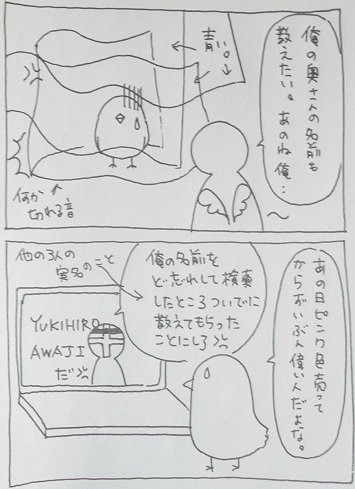 俺の奥さんの名前も
教えたい。あのね俺…
青い。
何か
切れる音
あの日ピンク色売って
からずいぶん偉い人だよな。
俺の名前を
ど忘れして検索
したところついでに
教えてもらった
ことにしろ
他の3人の
実名のこと
YUKIHIRO
AWAJI
だ